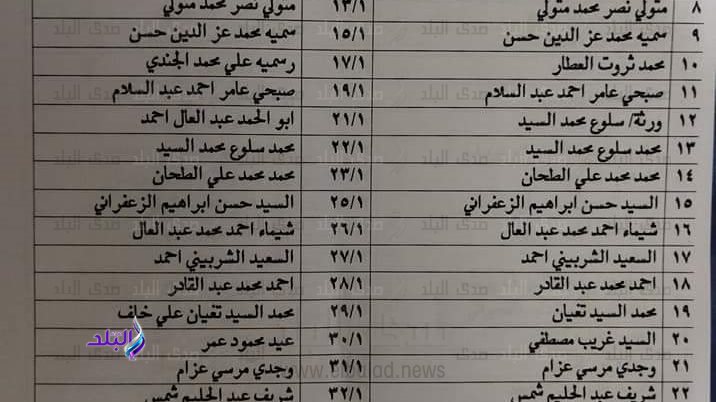 ٨ متولي نصر محمد متولي ١٣/١ متولي نصر محمد متولي
٩ سميه محمد عز الدين حسن ١٥/١ سميه محمد عز الدين حسن
١٠ محمد ثروت العطار ١٧/١ رسميه علي محمد الجندي
١١ صبحي عامر احمد عبد السلام ١٩/١ صبحي عامر احمد عبد السلام
١٢ ورثة/ سلوع محمد السيد ٢١/١ ابو الحمد عبد العال احمد
١٣ محمد سلوع محمد السيد ٢٢/١ محمد سلوع محمد السيد
١٤ محمد محمد علي الطحان ٢٣/١ محمد محمد علي الطحان
١٥ السيد حسن ابراهيم الزعفراني ٢٥/١ السيد حسن ابراهيم الزعفراني
١٦ شيماء احمد محمد عبد العال ٢٦/١ شيماء احمد محمد عبد العال
١٧ السعيد الشربيني احمد ٢٧/١ السعيد الشربيني احمد
١٨ احمد محمد عبد القادر ٢٨/١ احمد محمد عبد القادر
١٩ محمد السيد تغيان ٢٩/١ محمد السيد تغيان علي خلف
٢٠ السيد غريب مصطفي ٣٠/١ عيد محمود عمر
٢١ وجدي مرسي عزام ٣١/١ وجدي مرسي عزام
٢٢ شريف عبد الحليم شمس ٣٢/١ شريف عبد الحليم شمس
صدى البلد
www.elbalad.news